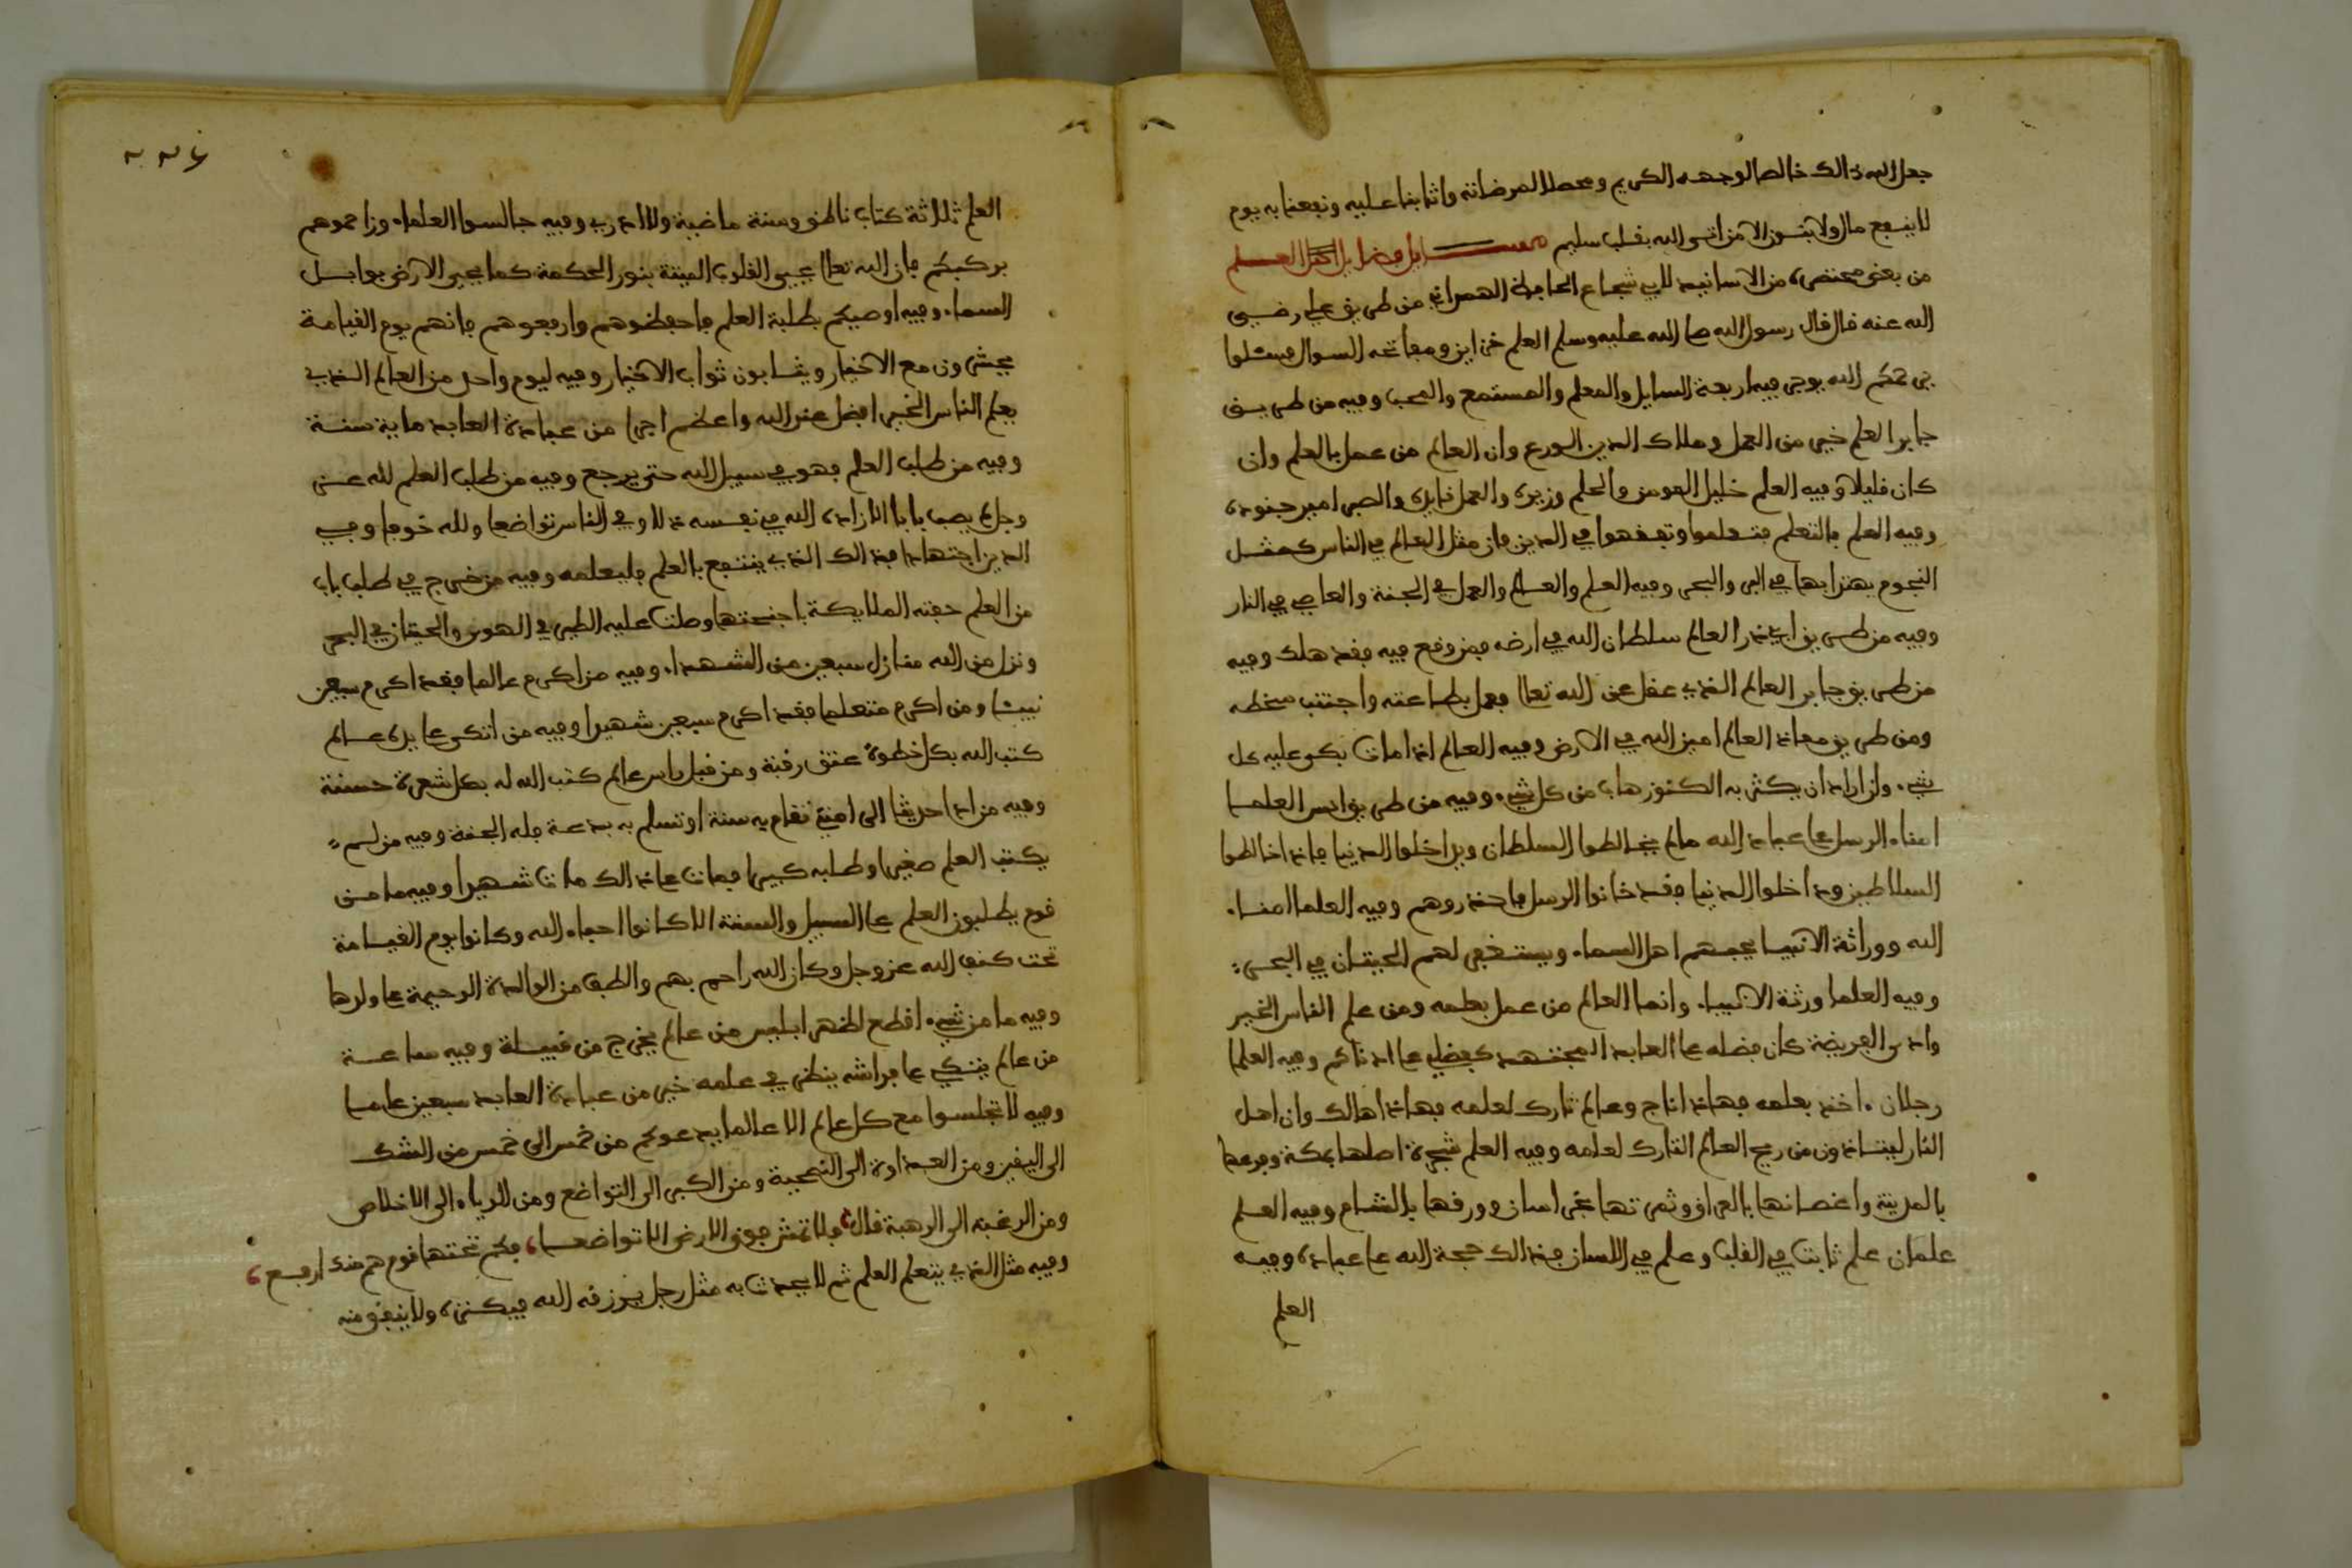 جعل الله ذالك خالصا لوجهه الكريم ومحصلا لمرضاته واثابنا عليه ونفعنا به يوم
لا ينفع مال ولا بنون الا من اتى الله بقلب سليم فضايل العلم
من بعض مختصره من الاسانيد لابي شجاع الحافظ الهمداني من طريق علي رضي
الله عنه قال قال رسول الله صلى الله عليه وسلم العلم خزاين ومفاتحه السوال فسئلوا
يرحمكم الله يوجر فيه اربعة السايل والمعلم والمستمع والمحب وفيه من طريق
جابر العلم خير من العمل وملاك الدين الورع وان العالم من عمل بالعلم وان
كان قليلا وفيه العلم خليل المومن والحلم وزيره والعمل قايده والصبر امير جنوده
وفيه العلم بالتعلم فتعلموا وتفقهوا في الدين فان مثل العالم في الناس كمثل
النجوم يهتدا بها في البر والبحر وفيه العلم والعالم والعمل في الجنة والعاصي في النار
وفيه من طريق ابي ذر العالم سلطان الله في ارضه فمن وقع فيه فقد هلك وفيه
من طريق جابر العالم الذي عقل عن الله تعالى فعمل بطاعته واجتنب سخطه
ومن طريق معاذ العالم امين الله في الارض وفيه العالم اذا مات بكى عليه كل
شيء وان اراد ان يكثر به الكنوز هاب من كل شيء وفيه من طريق انس العلما
امناء الرسل على عباد الله مالم يخالطوا السلطان ويداخلوا الدنيا فاذا خالطوا
السلاطين وداخلوا الدنيا فقد خانوا الرسل فاحذروهم وفيه العلما امناء
الله ووراثة الانبيا يحبهم اهل السماء ويستغفر لهم الحيتان في البحر
وفيه العلما ورثة الانبياء وانما العالم من عمل بعلمه ومن علم الناس الخير
وادى الفريضة كان فضله على العابد المجتهد كفضلي على ادناكم وفيه العلما
رجلان اخذ بعلمه فهاذا ناج وعالم تارك لعلمه فهاذا هالك وان اهل
النار ليتاذون من ريح العالم التارك لعلمه وفيه العلم شجرة اصلها بمكة وفرعها
بالمدينة واغصانها بالعراق وثمرتها بخراسان وورقها بالشام وفيه العلم
علمان علم ثابت في القلب وعلم في اللسان فذالك حجة الله على عباده وفيه
العلم
العلم ثلاثة كتاب ناطق وسنة ماضية ولا ادري وفيه جالسوا العلماء وزاحموهم
بركبكم فان الله تعالى يحيي القلوب الميتة بنور الحكمة كما يحيي الارض بوابل
السماء وفيه اوصيكم بطلبة العلم فاحفظوهم وارفعوهم فانهم يوم القيامة
يحشرون مع الاخيار ويثابون ثواب الاخيار وفيه ليوم واحد من العالم الذي
يعلم الناس الخير افضل عند الله واعظم اجرا من عبادة العابد ماية سنة
وفيه من طلب العلم فهو في سبيل الله حتى يرجع وفيه من طلب العلم لله عز
وجل لم يصب بابا الا زاده الله في نفسه ذلا وفي الناس تواضعا ولله خوفا وفي
الدين اجتهادا فذالك الذي ينتفع بالعلم فليعلمه وفيه من خرج في طلب باب
من العلم حفته الملايكة باجنحتها وصلت عليه الطير في الهوى والحيتان في البحر
ونزل من الله منازل سبعين من الشهداء وفيه من اكرم عالما فقد اكرم سبعين
نبيئا ومن اكرم متعلما فقد اكرم سبعين شهيدا وفيه من اتكى على يده عالم
كتب الله بكل خطوة عتق رقبة ومن قبل راس عالم كتب الله له بكل شعرة حسنة
وفيه من ادا حديثا الى امتي تقام به سنة او تسلم به بدعة فله الجنة وفيه من لم
يكتب العلم صغيرا وطلبه كبيرا فمات على ذالك مات شهيدا وفيه ما من
قوم يطلبون العلم على السبيل والسنة الا كانوا احباء الله وكانوا يوم القيامة
تحت كنف الله عز وجل وكان الله راحم بهم والطف من الوالدة الرحيمة على ولدها
وفيه ما من شيء اقطع لظهر ابليس من عالم يخرج من قبيلة وفيه ساعة
من عالم يتكي على فراشه ينظر في علمه خير من عبادة العابد سبعين عاما
وفيه لا تجلسوا مع كل عالم الا عالما يدعوكم من خمس الى خمس من الشك
الى اليقين ومن العداوة الى النصيحة ومن الكبر الى التواضع ومن الرياء الى الاخلاص
ومن الرغبة الى الرهبة قال ولا تمش فوق الارض الا تواضعا فكم تحتها قوم هم منك ارفع
وفيه مثل الذي يتعلم العلم ثم لا يحدث به مثل رجل يرزقه الله فيكنزه ولا ينفق منه